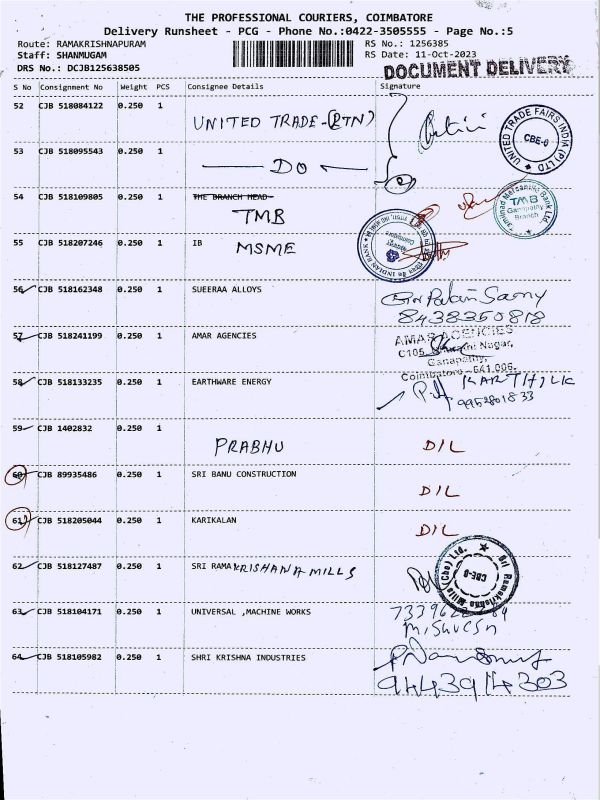 THE PROFESSIONAL COURIERS, COIMBATORE
Delivery Runsheet - PCG - Phone No.:0422-3505555 - Page No.:5
Route: RAMAKRISHNAPURAM
Staff: SHANMUGAM
DRS No.: DCJB125638505
RS No.: 1256385
RS Date: 11-Oct-2023
DOCUMENT DELIVERY
S No Consignment No Weight PCS Consignee Details Signature
52 CJB 518084122 0.250 1 UNITED TRADE-(RTN)
UNITED TRADE FAIRS INDIA (P) LTD
CBE-6
53 CJB 518095543 0.250 1 DO
54 CJB 518109805 0.250 1 THE BRANCH HEAD
TMB
Tamilnad Mercantile Bank Ltd
TMB
Ganapathy
Branch
55 CJB 518207246 0.250 1 IB MSME
INDIAN BANK
56 CJB 518162348 0.250 1 SUEERAA ALLOYS
8438350818
57 CJB 518241199 0.250 1 AMAR AGENCIES
AMAR AGENCIES
C105, Nagar,
Ganapathy,
Coimbatore - 641 006.
58 CJB 518133235 0.250 1 EARTHWARE ENERGY
KARTHICK
9952801833
59 CJB 1402832 0.250 1 PRABHU D/L
60 CJB 89935486 0.250 1 SRI BANU CONSTRUCTION D/L
61 CJB 518205044 0.250 1 KARIKALAN D/L
62 CJB 518127487 0.250 1 SRI RAMAKRISHANA MILLS
Sri Ramakrishna Mills (Cbe) Ltd.
CBE-6
63 CJB 518104171 0.250 1 UNIVERSAL ,MACHINE WORKS
64 CJB 518105982 0.250 1 SHRI KRISHNA INDUSTRIES
9443914303